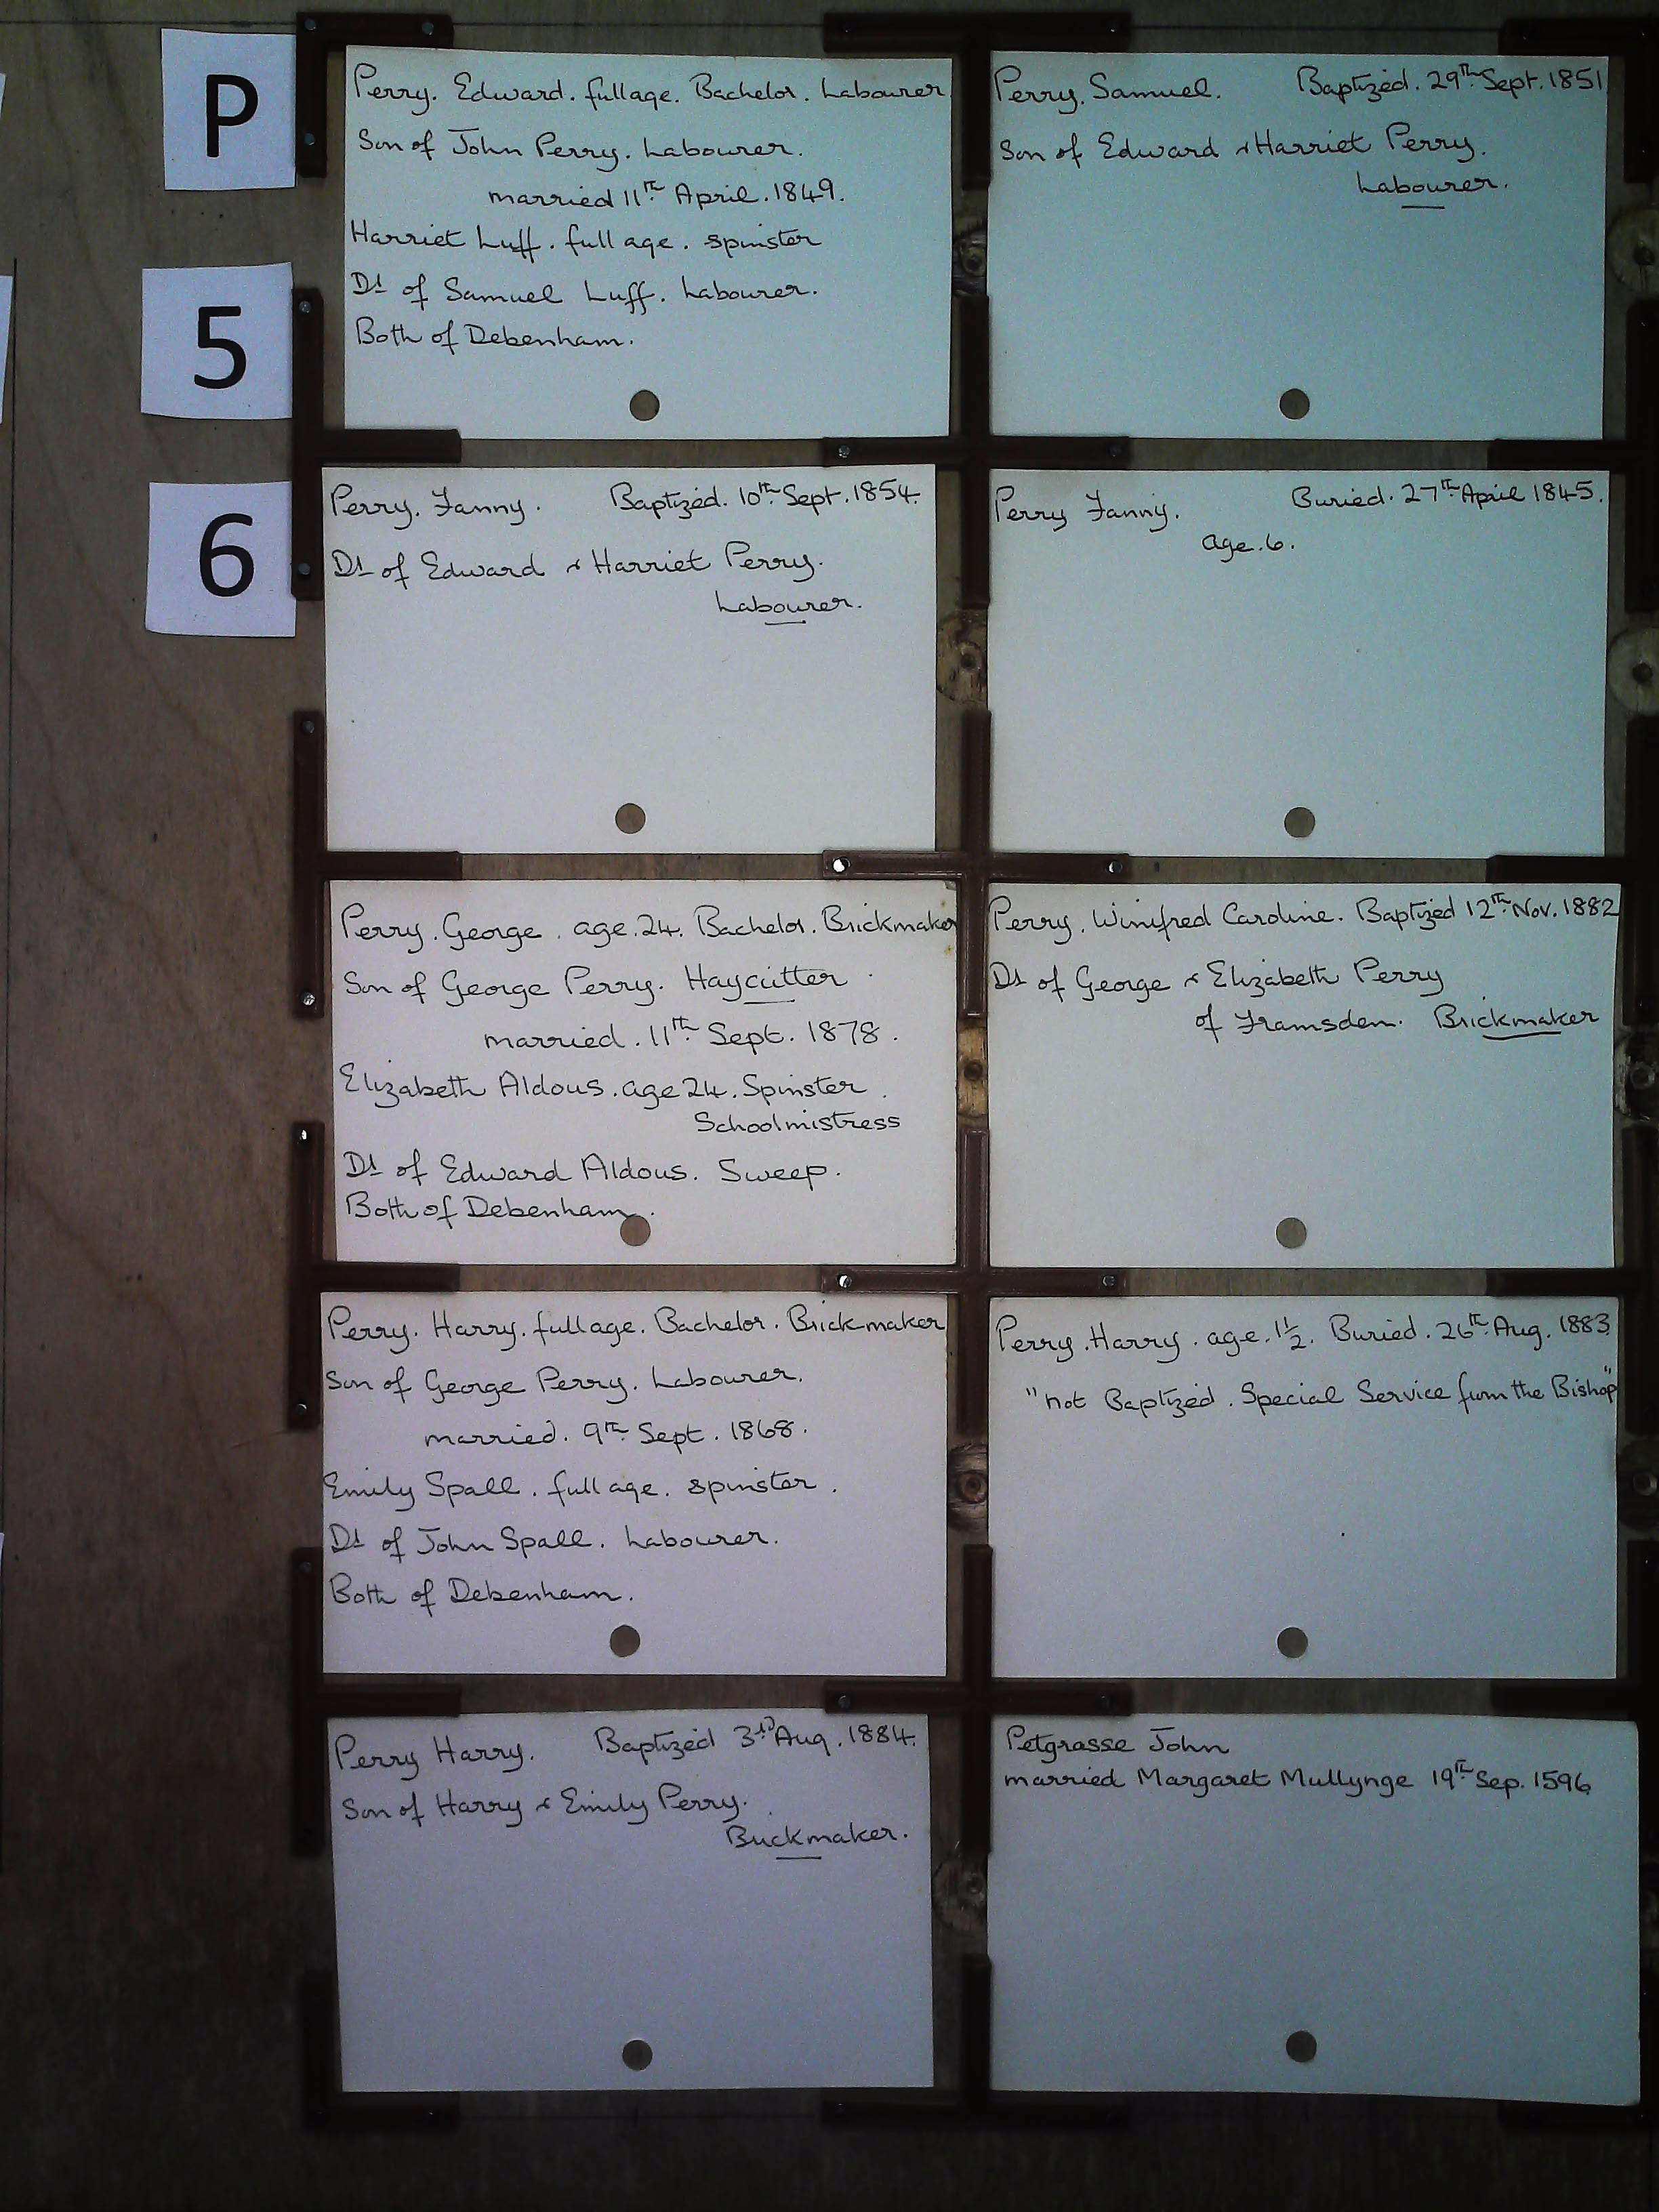 P
5
6
Perry. Edward. full age. Bachelor. Labourer
Son of John Perry. Labourer.
married 11th April. 1849.
Harriet Luff. full age. spinster
Dt of Samuel Luff. Labourer.
Both of Debenham.
Perry. Samuel. Baptized. 29th Sept. 1851
Son of Edward & Harriet Perry.
Labourer.
Perry. Fanny. Baptized. 10th Sept. 1854.
Dt of Edward & Harriet Perry.
Labourer.
Perry Fanny. Buried. 27th April 1845.
age. 6.
Perry. George. age. 24. Bachelor. Brickmaker
Son of George Perry. Haycutter
married. 11th Sept. 1878.
Elizabeth Aldous. age 24. Spinster.
Schoolmistress
Dt of Edward Aldous. Sweep.
Both of Debenham.
Perry. Winifred Caroline. Baptized 12th Nov. 1882
Dt of George & Elizabeth Perry
of Framsden. Brickmaker
Perry. Harry. full age. Bachelor. Brickmaker
Son of George Perry. Labourer.
married. 9th Sept. 1868.
Emily Spall. full age. spinster.
Dt of John Spall. Labourer.
Both of Debenham.
Perry. Harry. age. 1½. Buried. 26th Aug. 1883
"not Baptized. Special Service from the Bishop"
Perry Harry. Baptized 3rd Aug. 1884.
Son of Harry & Emily Perry.
Brickmaker.
Petgrasse John
married Margaret Mullynge 19th Sep. 1596